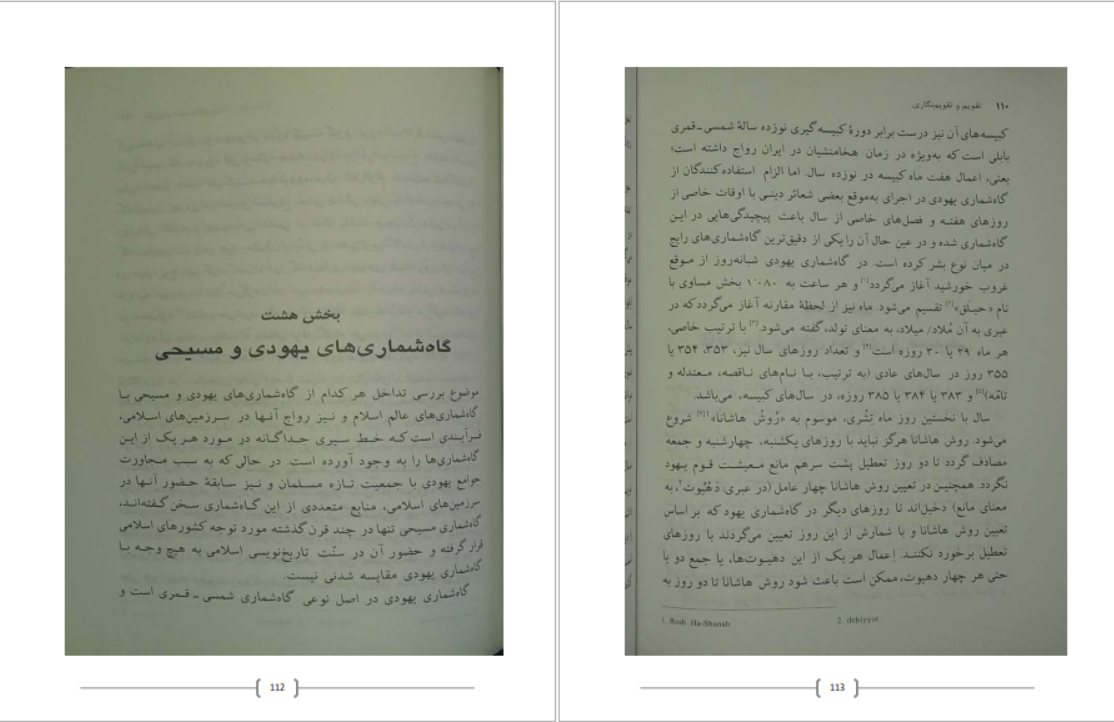 بخش هشت
گاه‌شماری‌های یهودی و مسیحی
موضوع بررسی تداخل هر کدام از گاه‌شماری‌های یهودی و مسیحی با
گاه‌شماری‌های عالم اسلام و نیز رواج آنها در سرزمین‌های اسلامی،
فرآیندی است که خط سیری جداگانه در مورد هر یک از این
گاه‌شماری‌ها را به وجود آورده است. در حالی که به سبب مجاورت
جوامع یهودی با جمعیت تازه مسلمان و نیز سابقهٔ حضور آنها در
سرزمین‌های اسلامی، منابع متعددی از این گاه‌شماری سخن گفته‌اند،
گاه‌شماری مسیحی تنها در چند قرن گذشته مورد توجه کشورهای اسلامی
قرار گرفته و حضور آن در سنّت تاریخ‌نویسی اسلامی به هیچ وجه با
گاه‌شماری یهودی مقایسه شدنی نیست.
گاه‌شماری یهودی در اصل نوعی گاه‌شماری شمسی ـ قمری است و
112
۱۱۰ تقویم و تقویم‌نگاری
کبیسه‌های آن نیز درست برابر دورهٔ کبیسه‌گیری نوزده سالهٔ شمسی ـ قمری
بابلی است که به‌ویژه در زمان هخامنشیان در ایران رواج داشته است؛
یعنی، اعمال هفت ماه کبیسه در نوزده سال. اما الزام استفاده‌کنندگان از
گاه‌شماری یهودی در اجرای به‌موقع بعضی شعائر دینی با اوقات خاصی از
روزهای هفته و فصل‌های خاصی از سال باعث پیچیدگی‌هایی در این
گاه‌شماری شده و در عین حال آن را یکی از دقیق‌ترین گاه‌شماری‌های رایج
در میان نوع بشر کرده است. در گاه‌شماری یهودی شبانه‌روز از موقع
غروب خورشید آغاز می‌گردد[۱] و هر ساعت به ۱٬۰۸۰ بخش مساوی با
نام «حیلَق»[۲] تقسیم می‌شود. ماه نیز از لحظهٔ مقارنه آغاز می‌گردد که در
عبری به آن مُلاد/ میلاد، به معنای تولد، گفته می‌شود.[۳] با ترتیب خاصی،
هر ماه ۲۹ یا ۳۰ روزه است[۴] و تعداد روزهای سال نیز، ۳۵۳، ۳۵۴ یا
۳۵۵ روز در سال‌های عادی (به ترتیب، با نام‌های ناقصه، معتدله و
تامّه)[۵] و ۳۸۳ یا ۳۸۴ یا ۳۸۵ روزه، در سال‌های کبیسه، می‌باشد.
سال با نخستین روز ماه تِشری، موسوم به «رُوشْ هاشانا»[۶]۱ شروع
می‌شود. روش هاشانا هرگز نباید با روزهای یکشنبه، چهارشنبه و جمعه
مصادف گردد تا دو روز تعطیل پشت سرهم مانع معیشت قوم یهود
نگردد. همچنین در تعیین روش هاشانا چهار عامل (در عبری: دَهْیُوت۲، به
معنای مانع) دخیل‌اند تا روزهای دیگر در گاه‌شماری یهود که بر اساس
تعیین روش هاشانا و با شمارش از این روز تعیین می‌گردند با روزهای
تعطیل برخورد نکنند. اِعمال هر یک از این دهیوت‌ها، یا جمع دو یا
حتی هر چهار دهیوت، ممکن است باعث شود روش هاشانا تا دو روز به
1. Rosh Ha-Shanah 2. dehiyyot
113